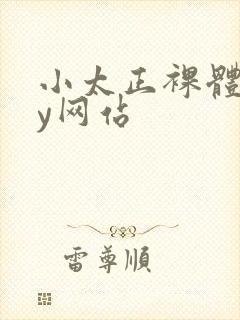 小太正裸體
y网佔
雷尊順